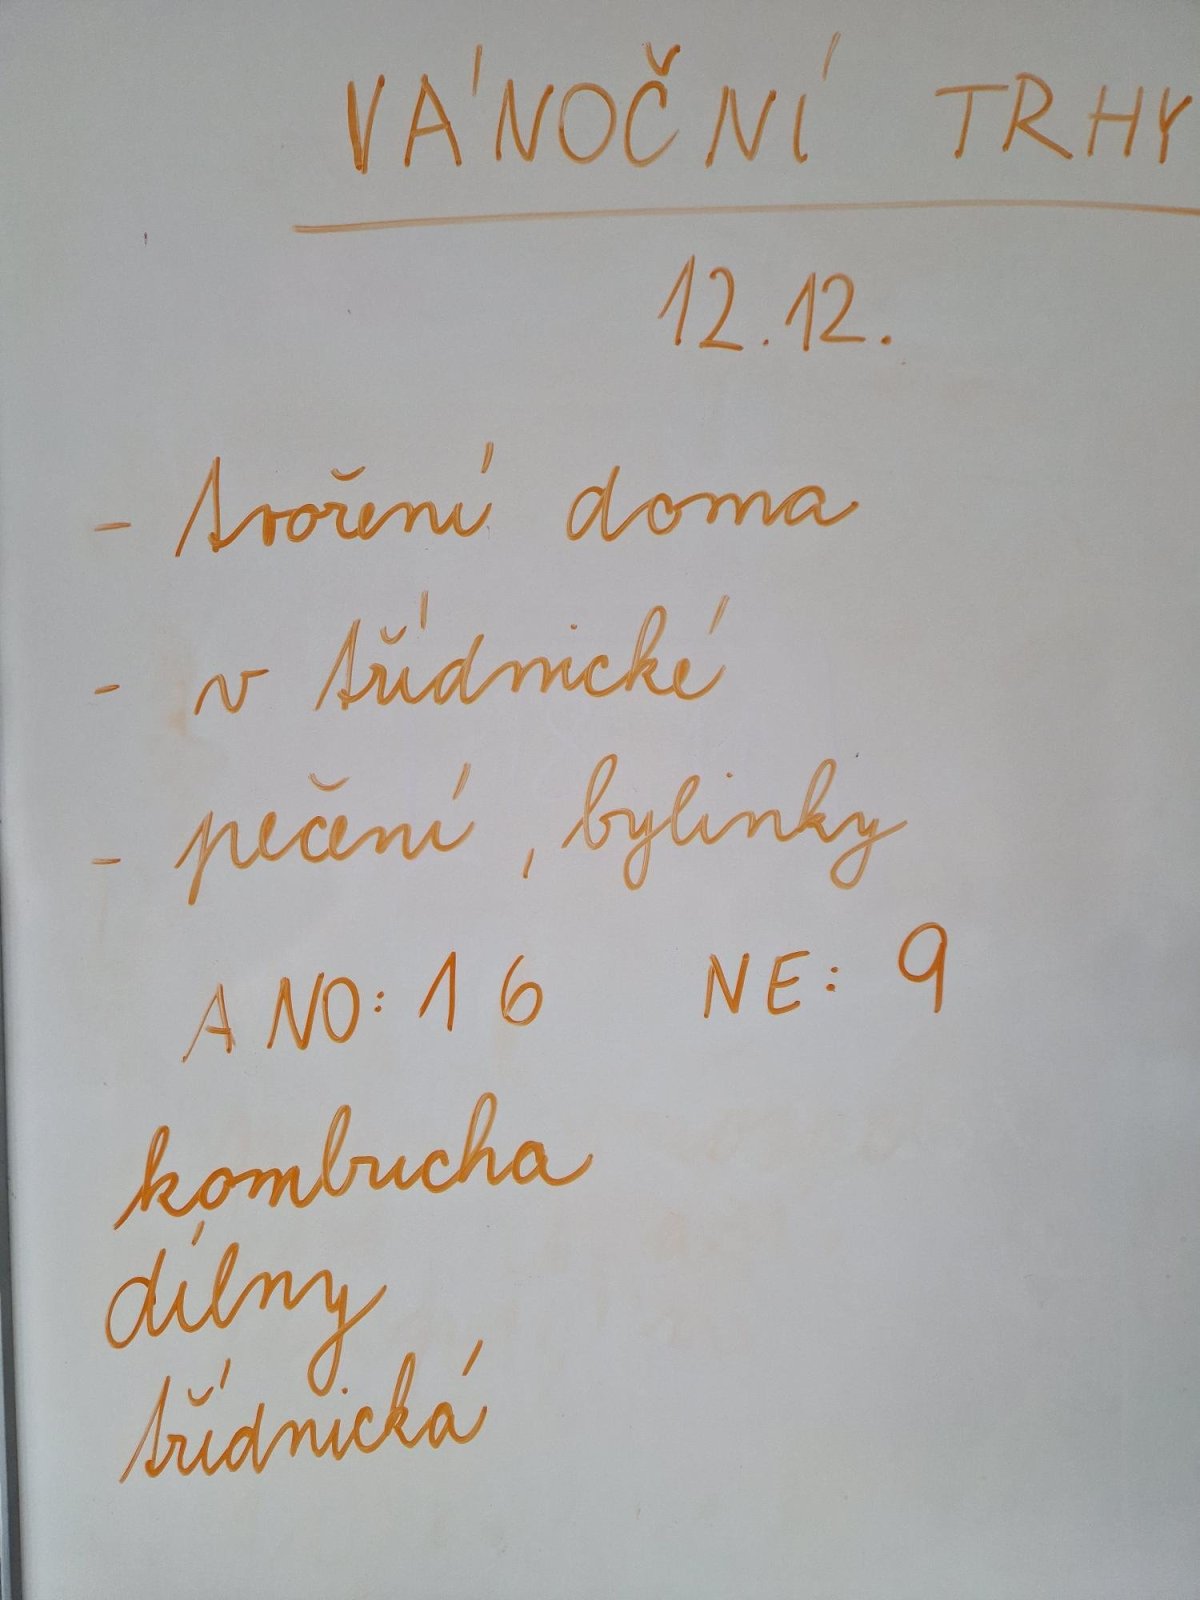 VÁNOČNÍ TRHY
12.12.
- tvoření doma
- v třídnické
- pečení, bylinky
ANO: 16 NE: 9
kombucha
dílny
třídnická